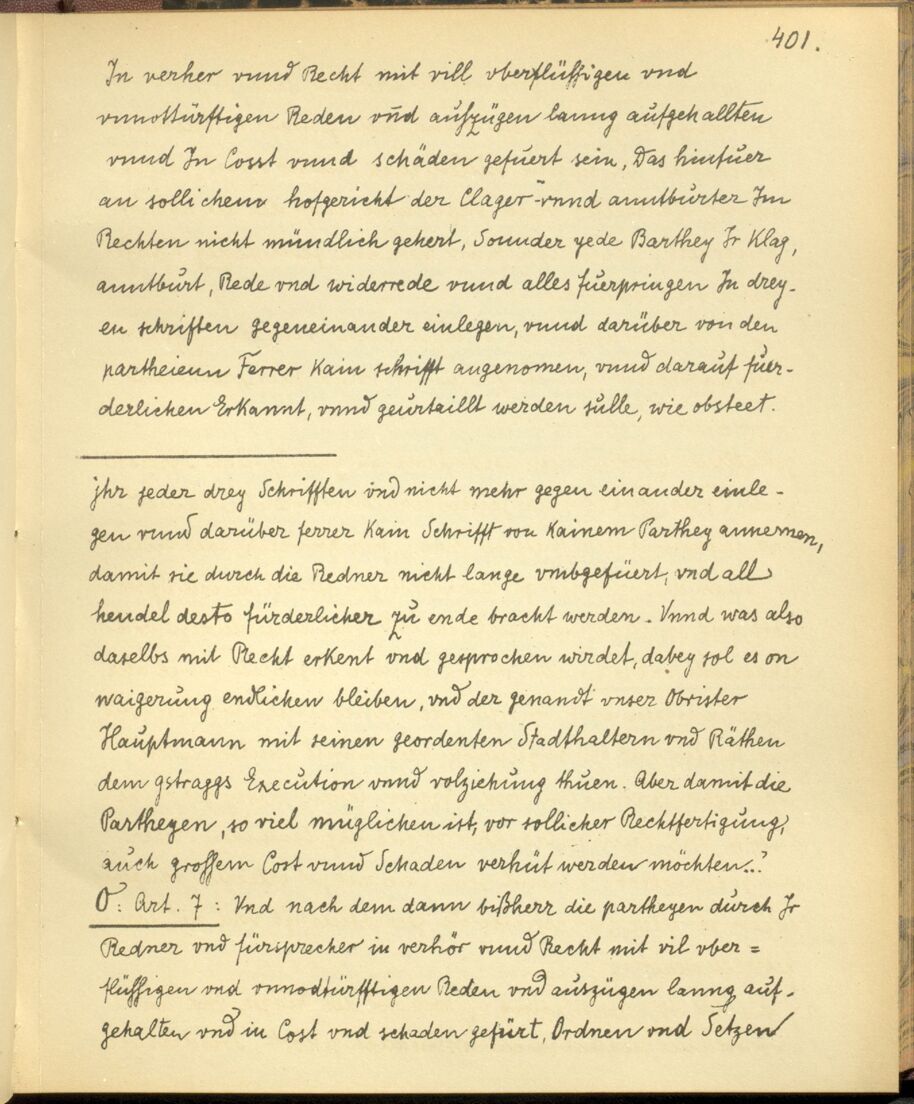 401.
In verher vnnd Recht mit vill vberflüssigen vnd
vnnottürftigen Reden vnd aufzügen lanng aufgehallten
vnnd In Cosst vnnd schäden gefuert sein, Das hinfuer
an sollichem hofgericht der Clager vnnd anntburter Im
Rechten nicht mündlich gehert, Sonnder yede Barthey Ir Klag,
anntburt, Rede vnd widerrede vnnd alles fuerpringen In drey-
en schriften gegeneinander einlegen, vnnd darüber von den
partheienn Ferrer Kain schrifft angenomen, vnnd darauf fuer-
derlichen Erkannt, vnnd geurtaillt werden sulle, wie obsteet.
jhr jeder drey Schrifften vnd nicht mehr gegen einander einle-
gen vnnd darüber ferrer Kain Schrifft von Kainem Parthey annemen,
damit sie durch die Redner nicht lange vmbgefüert, vnd all
hendel desto fürderlicher zu ende bracht werden. Vnnd was also
daselbs mit Recht erkent vnd gesprochen wirdet, dabey sol es on
waigerung endlichen bleiben, vnd der genandt vnser Obrister
Hauptmann mit seinen geordenten Stadthaltern vnd Räthen
dem gstraggs Execution vnnd volziehung thuen. Aber damit die
Partheyen, so viel müglichen ist, vor sollicher Rechtfertigung,
auch grossem Cost vnnd Schaden verhüt werden möchten..."
O: Art. 7: Vnd nach dem dann bißherr die partheyen durch Ir
Redner vnd fürsprecher in verhör vnnd Recht mit vil vber=
flüssigen vnd vnnodtürfftigen Reden vnd auszügen lanng auf-
gehalten vnd in Cost vnd schaden gefürt, Ordnen vnd Setzen